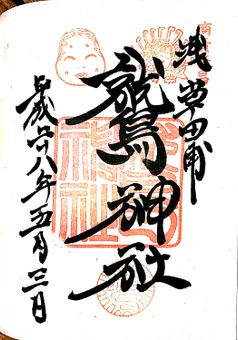 浅草田甫
鷲神社
平成二八年五月三日